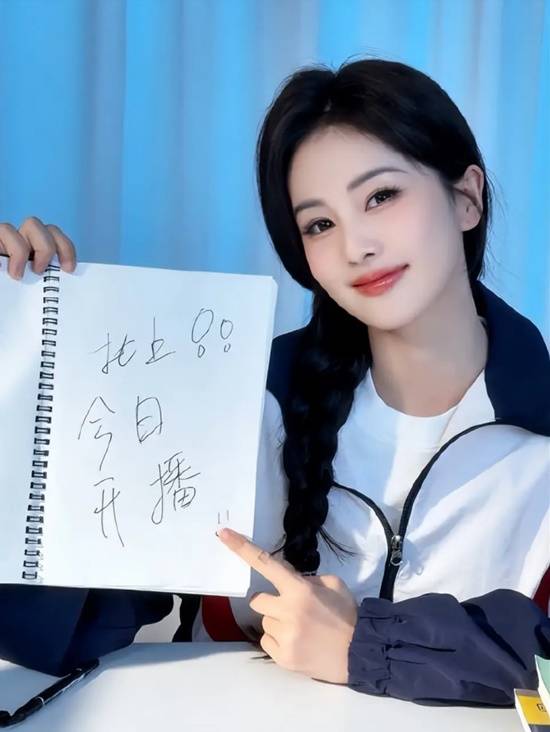 北上!!
今日
开播